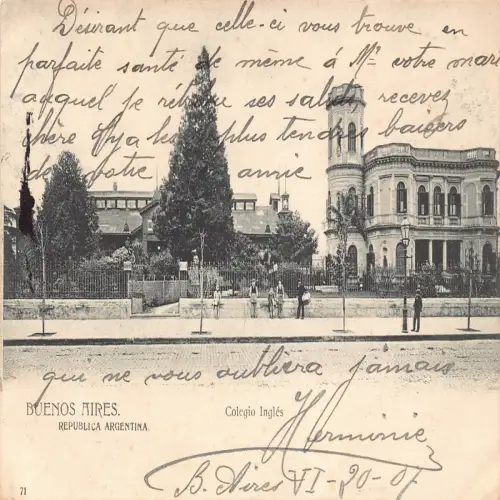 Désirant que celle-ci vous trouve en
parfaite santé de même à Mr votre mari
auquel je ses recevez
chère les plus tendres baisers
de votre amie
qui ne vous oubliera jamais
BUENOS AIRES.
REPUBLICA ARGENTINA.
Colegio Inglés
Herminie
B. Aires VI-20-07
71